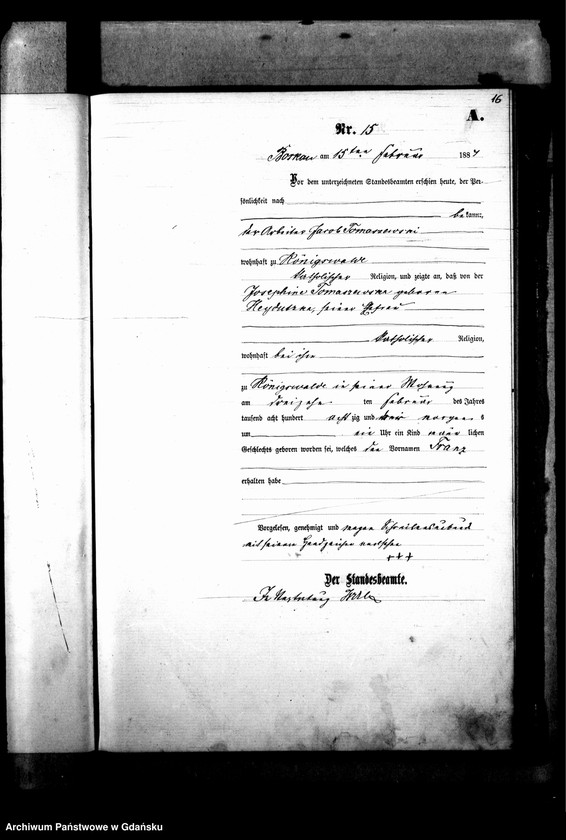 16
A.
Nr. 15
Borkau am 15ten Februar 1884
Vor dem unterzeichneten Standesbeamten erschien heute, der Per-
sönlichkeit nach
bekannt,
der Arbeiter Jacob Tomaszewski
wohnhaft zu Königswalde
katholischer Religion, und zeigte an, daß von der
Josephine Tomaszewska geborene
seiner Ehefrau
katholischer Religion,
wohnhaft bei ihm
zu Königswalde in seiner Wohnung
am dreizehn ten Februar des Jahres
tausend acht hundert acht zig und vier morgens
um ein Uhr ein Kind männlichen
Geschlechts geboren worden sei, welches den Vornamen Franz
erhalten habe
Vorgelesen, genehmigt und wegen
mit seinem Handzeichen versehen
+++
Der Standesbeamte.
In Vertretung
Archiwum Państwowe w Gdańsku